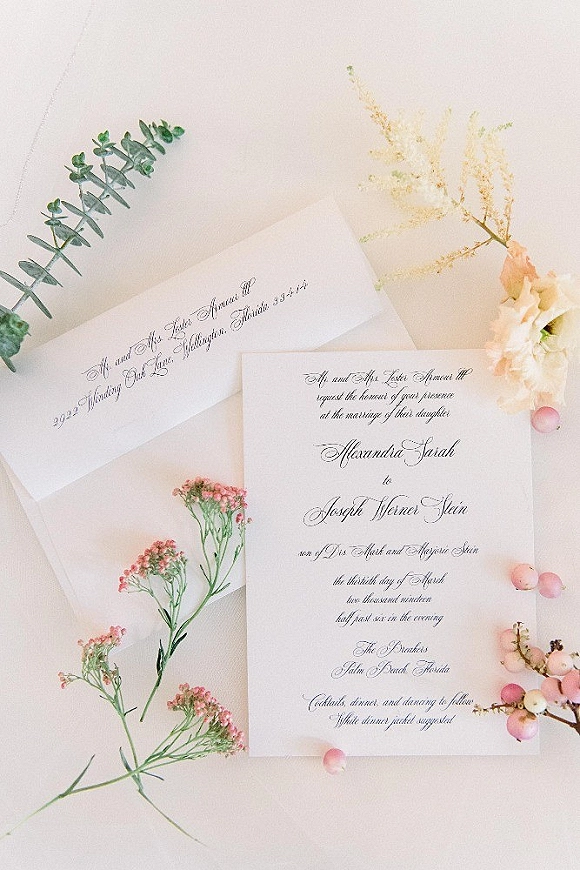 Mr. and Mrs. Lester Armour III
2922 Winding Oak Lane, Wellington, Florida 33414
Mr. and Mrs. Lester Armour III
request the honour of your presence
at the marriage of their daughter
Alexandra Sarah
to
Joseph Werner Stein
son of Drs. Mark and Marjorie Stein
the thirtieth day of March
two thousand nineteen
half past six in the evening
The Breakers
Palm Beach, Florida
Cocktails, dinner, and dancing to follow
White dinner jacket suggested